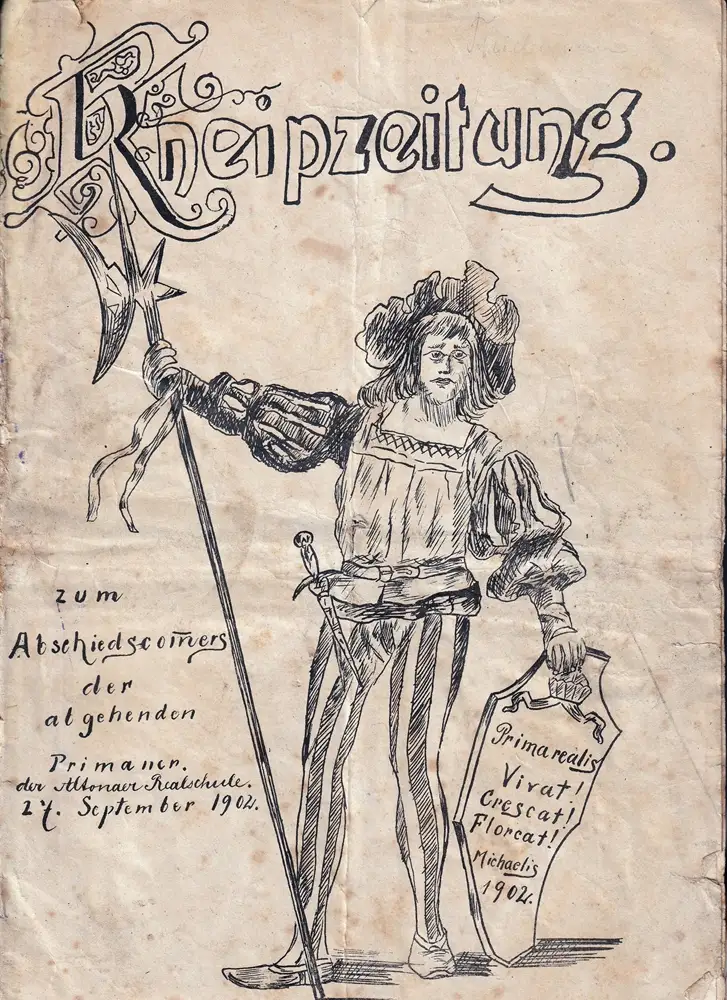 Kneipzeitung.
zum
Abschiedscom̅ers
der
abgehenden
Primaner.
der Altonaer Realschule.
27. September 1902.
Primarealis
Vivat!
Crescat!
Florcat!
Michaelis
1902.